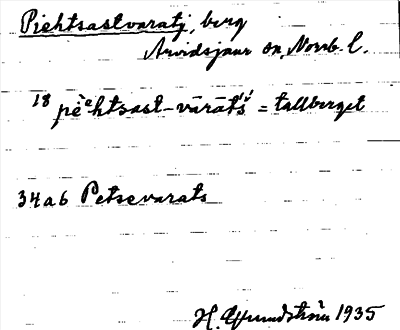 Piehtsastvaratj, berg
Arvidsjaur sn, Norrb. l.
18 pèᵉhtsast-vārāt́s̀́ = tallberget
34 a 6 Petsevarats
H. Grundström 1935